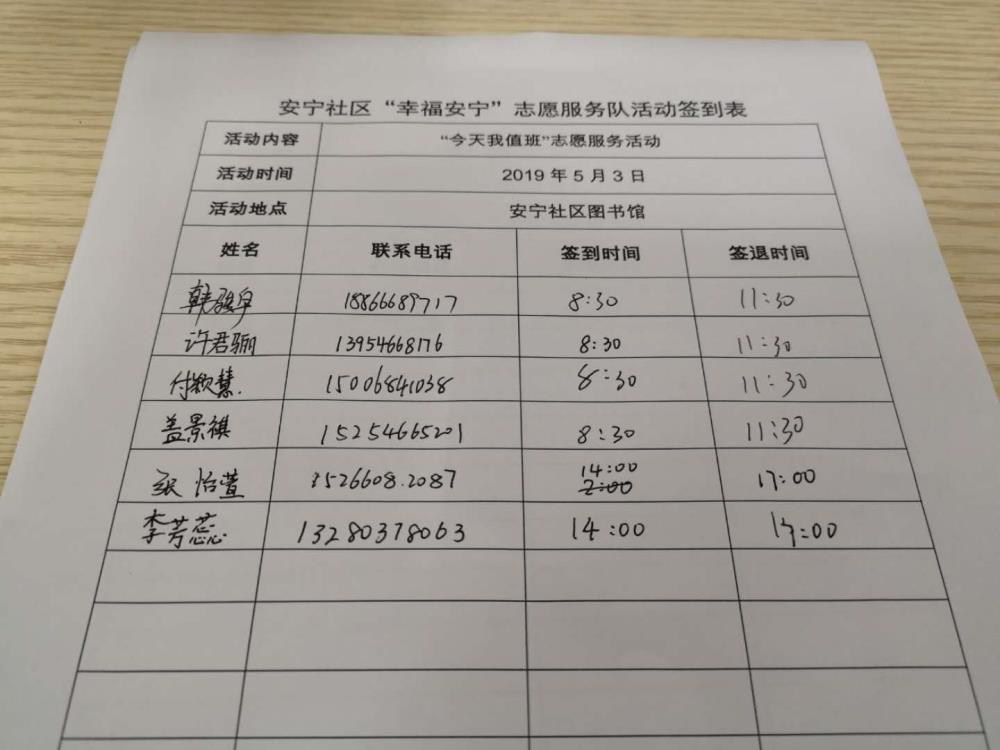 安宁社区“幸福安宁”志愿服务队活动签到表
活动内容 “今天我值班”志愿服务活动
活动时间 2019 年 5 月 3 日
活动地点 安宁社区图书馆
姓名 联系电话 签到时间 签退时间
韩骏阜 18866689717 8:30 11:30
许君骊 13954668176 8:30 11:30
15006841038 8:30 11:30
盖景祺 15254665201 8:30 11:30
14:00
张怡萱 15266082087 2:00 17:00
李芳蕊 13280378063 14:00 17:00